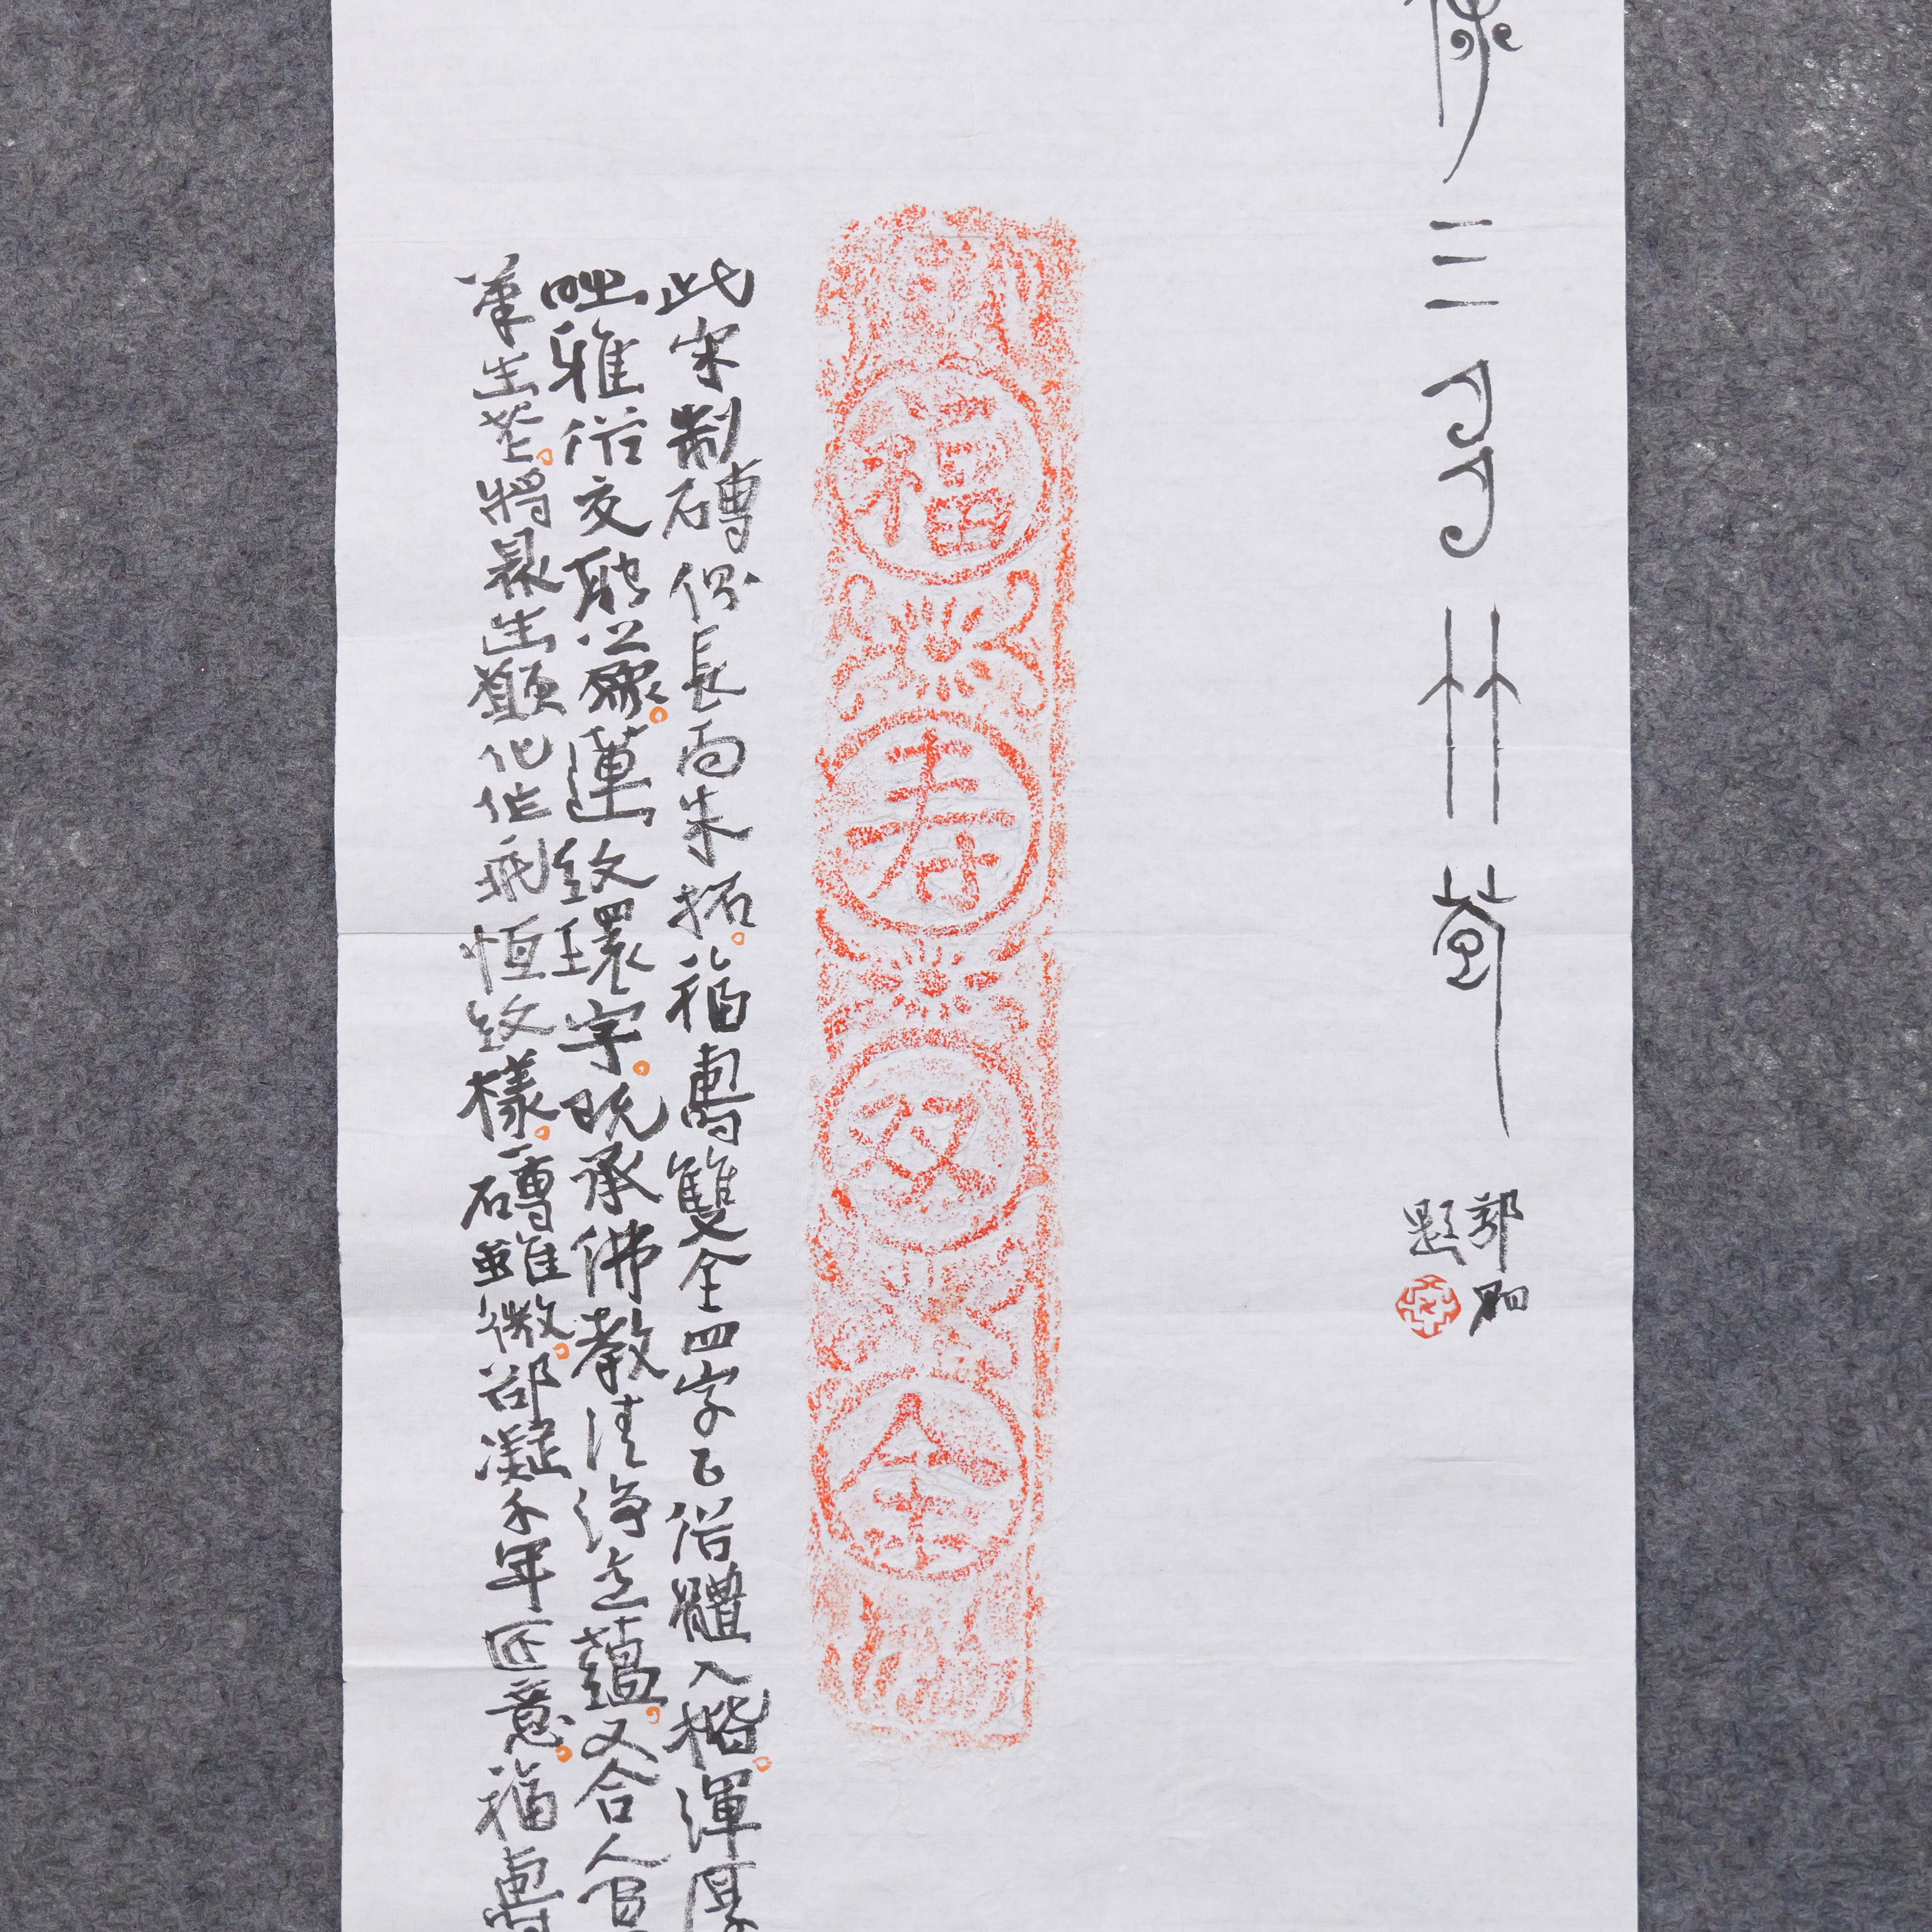 三
郭
題
福
寿
双
全
此宋制磚側長面朱拓。福壽雙全四字以俗體入楷。渾厚
雅俗交融之象。蓮紋環字。既承佛教清淨之蘊。又合人間
生芒。將眾生願化作永恒紋樣。一磚雖微。卻凝千年匠意。福壽